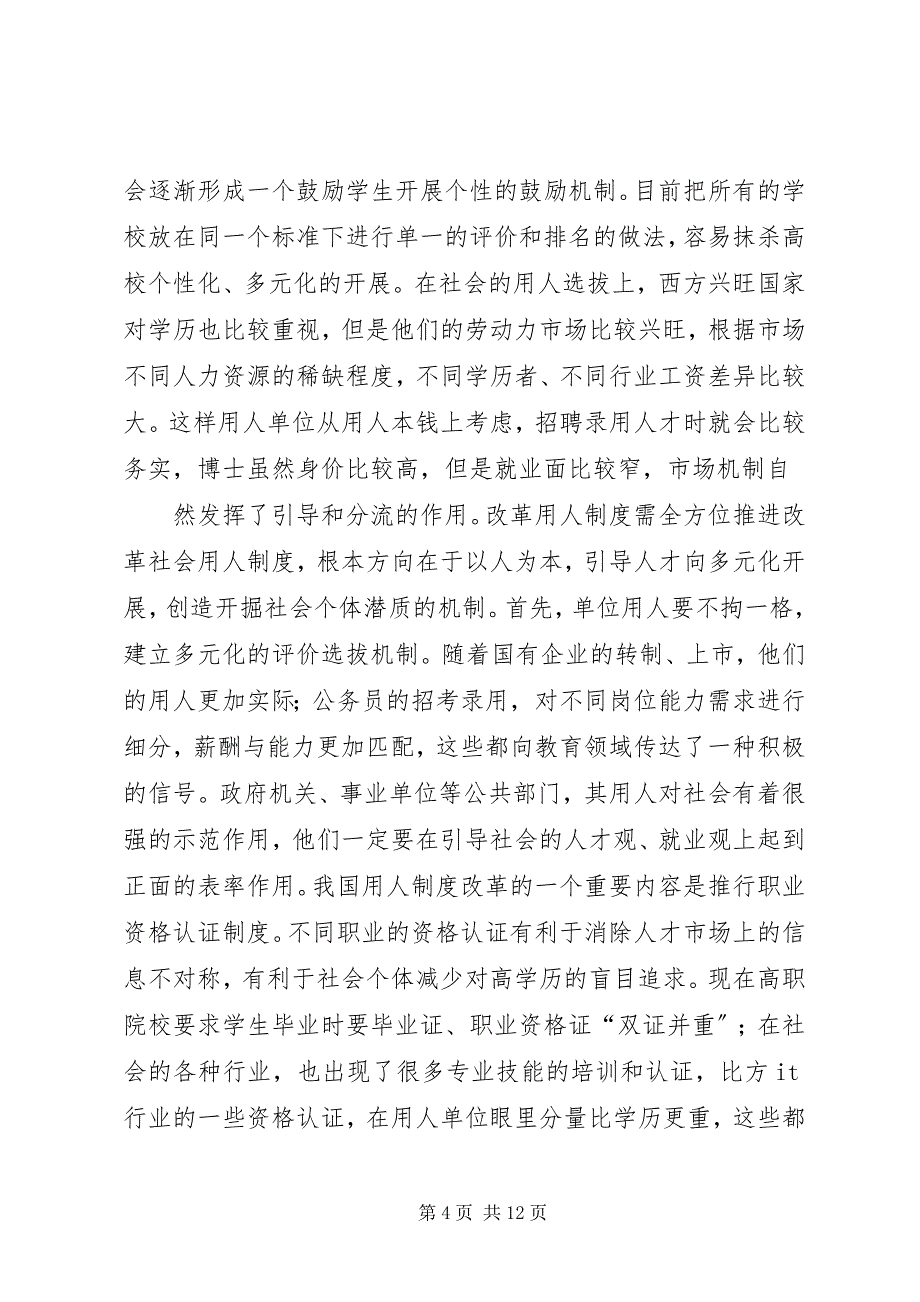 会逐渐形成一个鼓励学生开展个性的鼓励机制。目前把所有的学
校放在同一个标准下进行单一的评价和排名的做法，容易抹杀高
校个性化、多元化的开展。在社会的用人选拔上，西方兴旺国家
对学历也比较重视，但是他们的劳动力市场比较兴旺，根据市场
不同人力资源的稀缺程度，不同学历者、不同行业工资差异比较
大。这样用人单位从用人本钱上考虑，招聘录用人才时就会比较
务实，博士虽然身价比较高，但是就业面比较窄，市场机制自
然发挥了引导和分流的作用。改革用人制度需全方位推进改
革社会用人制度，根本方向在于以人为本，引导人才向多元化开
展，创造开掘社会个体潜质的机制。首先，单位用人要不拘一格，
建立多元化的评价选拔机制。随着国有企业的转制、上市，他们
的用人更加实际；公务员的招考录用，对不同岗位能力需求进行
细分，薪酬与能力更加匹配，这些都向教育领域传达了一种积极
的信号。政府机关、事业单位等公共部门，其用人对社会有着很
强的示范作用，他们一定要在引导社会的人才观、就业观上起到
正面的表率作用。我国用人制度改革的一个重要内容是推行职业
资格认证制度。不同职业的资格认证有利于消除人才市场上的信
息不对称，有利于社会个体减少对高学历的盲目追求。现在高职
院校要求学生毕业时要毕业证、职业资格证“双证并重〞；在社
会的各种行业，也出现了很多专业技能的培训和认证，比方it
行业的一些资格认证，在用人单位眼里分量比学历更重，这些都
第 4 页 共 12 页